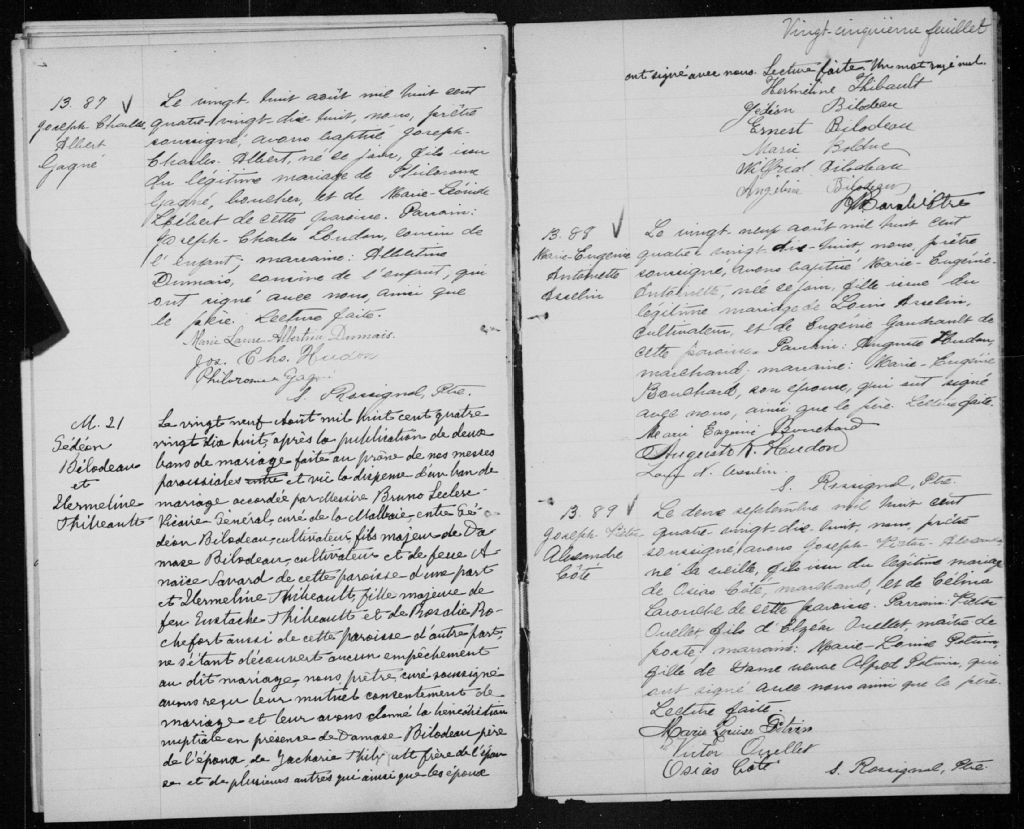 B. 87
Joseph-Charles
Albert
Gagné
Le vingt huit août mil huit cent
quatre-vingt-dix huit, nous, prêtre
soussigné, avons baptisé Joseph-
Charles-Albert, né ce jour, fils issu
du légitime mariage de Philorome
Gagné, boucher, et de Marie-Léonide
de cette paroisse. Parrain:
Joseph-Charles Hudon, cousin de
l'enfant, marraine: Albertine
Dumais, cousine de l'enfant, qui
ont signé avec nous, ainsi que
le père. Lecture faite.
Marie Laure-Albertine Dumais.
Jos. Chs. Hudon
Philorome Gagné
S. Rossignol, Ptre.
M. 21
Gédéon
Bilodeau
et
Hermeline
Thibeault
Le vingt neuf Août mil huit cent quatre
vingt dix huit, après la publication de deux
bans de mariage faite au prône de nos messes
paroissiales entre et vû la dispense d'un ban de
mariage accordée par Messire Bruno Leclerc
Vicaire Général, curé de la Malbaie, entre Gé-
déon Bilodeau, cultivateur, fils majeur de Da-
mase Bilodeau, cultivateur et de feue A-
naïce Savard de cette paroisse d'une part
et Hermeline Thibeault, fille majeure de
feu Eustache Thibeault et de Rosalie Ro-
chefort aussi de cette paroisse d'autre part,
ne s'étant découvert aucun empêchement
au dit mariage, nous prêtre, curé soussigné
avons reçu leur mutuel consentement de
mariage et leur avons donné la bénédiction
nuptiale en présence de Damase Bilodeau père
de l'époux, de Zacharie Thibeault frère de l'épou-
se et de plusieurs autres qui ainsi que les époux
Vingt-cinquième feuillet
ont signé avec nous. Lecture faite. Un mot rayé nul.
Herméline Thibault
Gédéon Bilodeau
Ernest Bilodeau
Marie Bolduc
Wilfrid Bilodeau
Angélina Bilodeau
Ptre
B. 88
Marie-Eugénie
Antoinette
Asselin
Le vingt-neuf août mil huit cent
quatre vingt dix-huit, nous, prêtre
soussigné, avons baptisé Marie-Eugénie-
Antoinette, née ce jour, fille issue du
légitime mariage de Louis Asselin,
cultivateur, et de Eugénie Gaudrault de
cette paroisse. Parrain: Auguste Hudon,
marchand; marraine: Marie-Eugénie
Bouchard, son épouse, qui ont signé
avec nous, ainsi que le père. Lecture faite.
Marie Eugénie Bouchard
Auguste R. Hudon
Asselin
S. Rossignol, Ptre.
B. 89
Joseph-Victor
Alexandre
Côté
Le deux septembre mil huit cent
quatre vingt-dix-huit, nous, prêtre
soussigné, avons Joseph-Victor-Alexandre
né la veille, fils issu du légitime mariage
de Osias Côté, marchand, et de Célina
Larouche de cette paroisse. Parrain: Victor
Ouellet, fils d'Elzéar Ouellet, maître de
poste; marraine: Marie-Louise Potvin,
fille de Dame veuve Alfred Potvin, qui
ont signé avec nous ainsi que le père.
Lecture faite.
Marie Louise Potvin
Victor Ouellet
Osias Côté
S. Rossignol, Ptre.